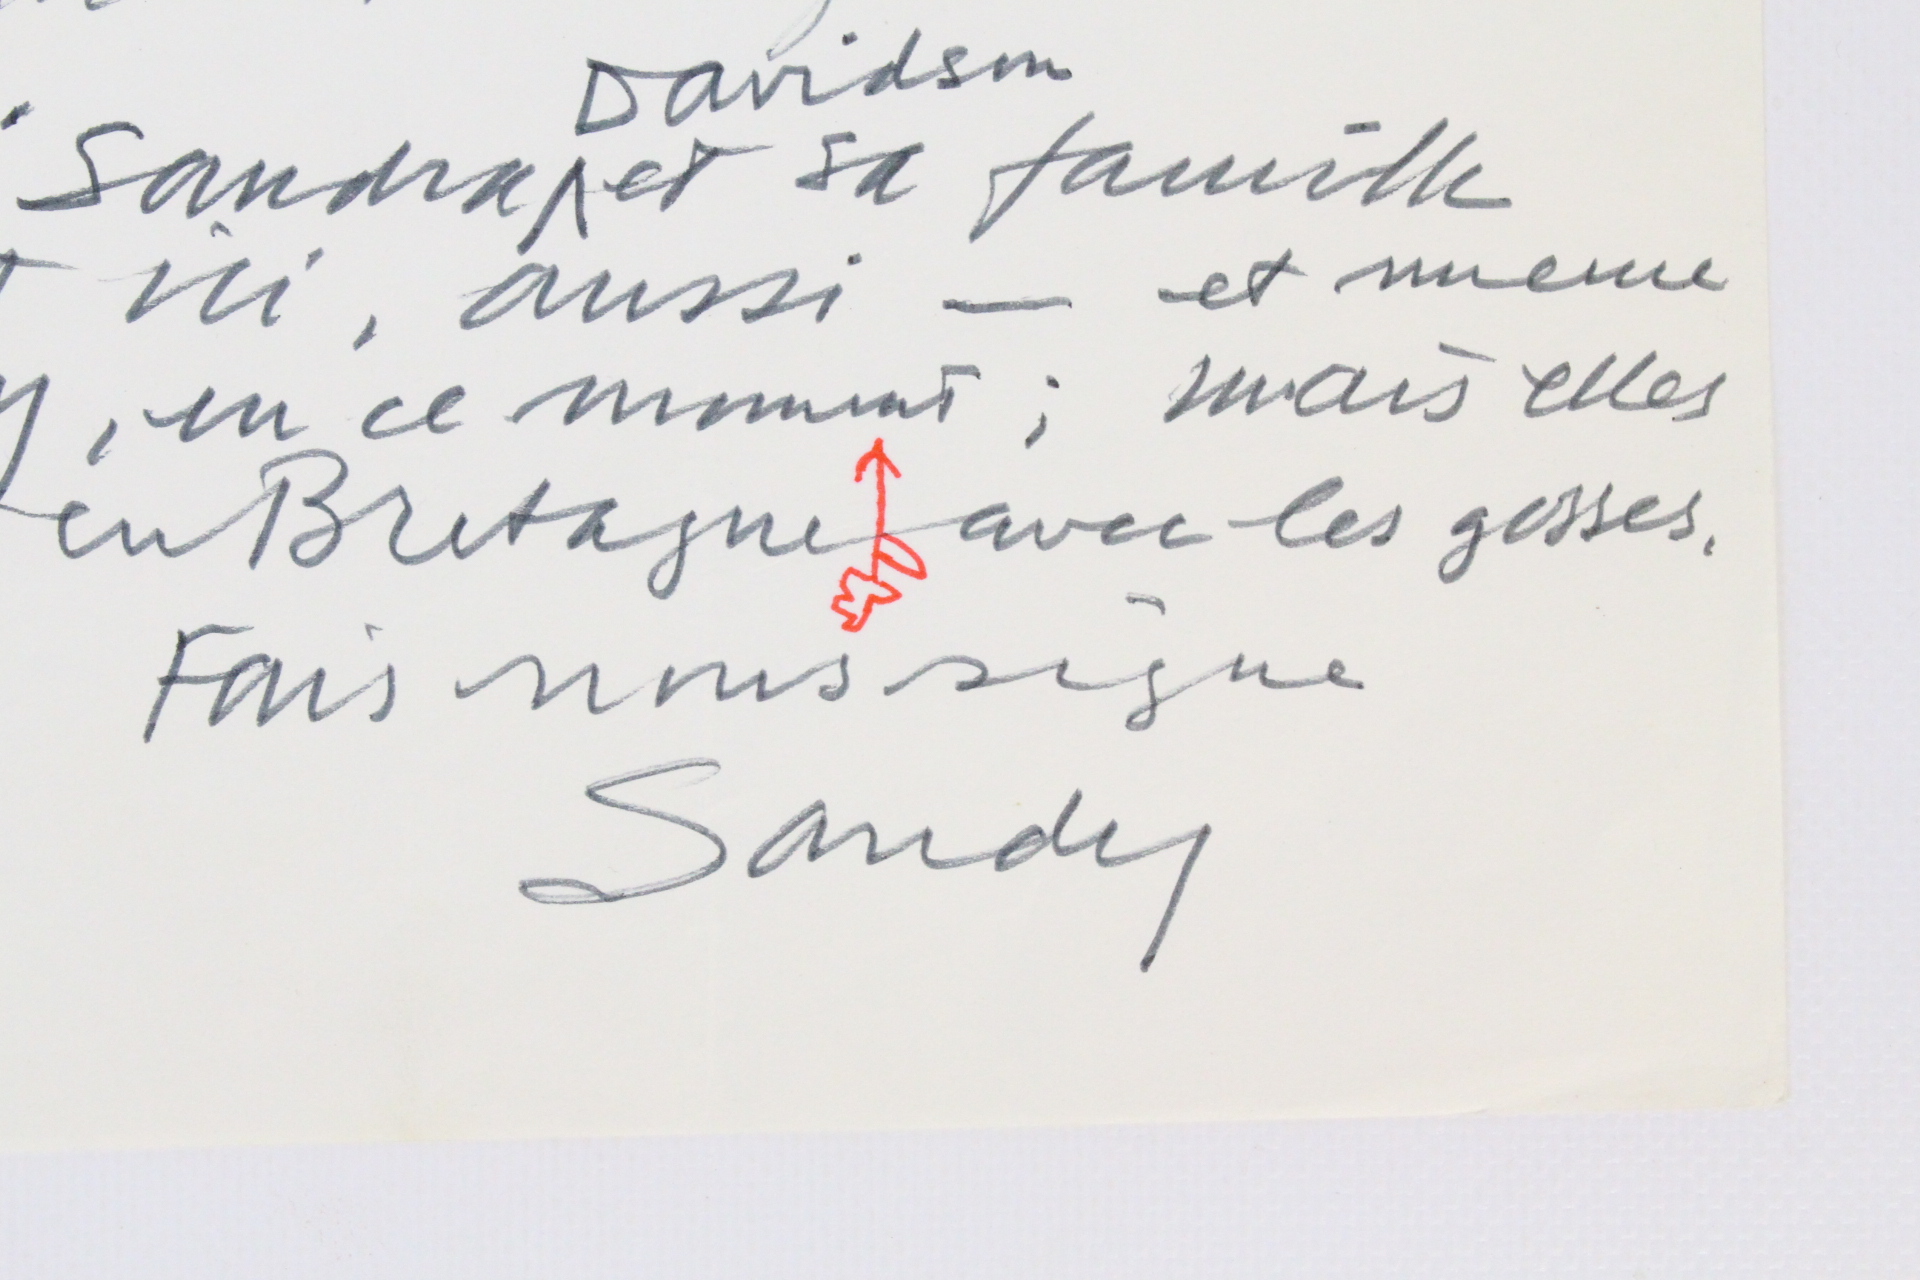 Davidson
Sandra et sa famille
ici, aussi — et meme
, en ce moment ; mais elles
en Bretagne avec les gosses.
Fais nous signe
Sandy